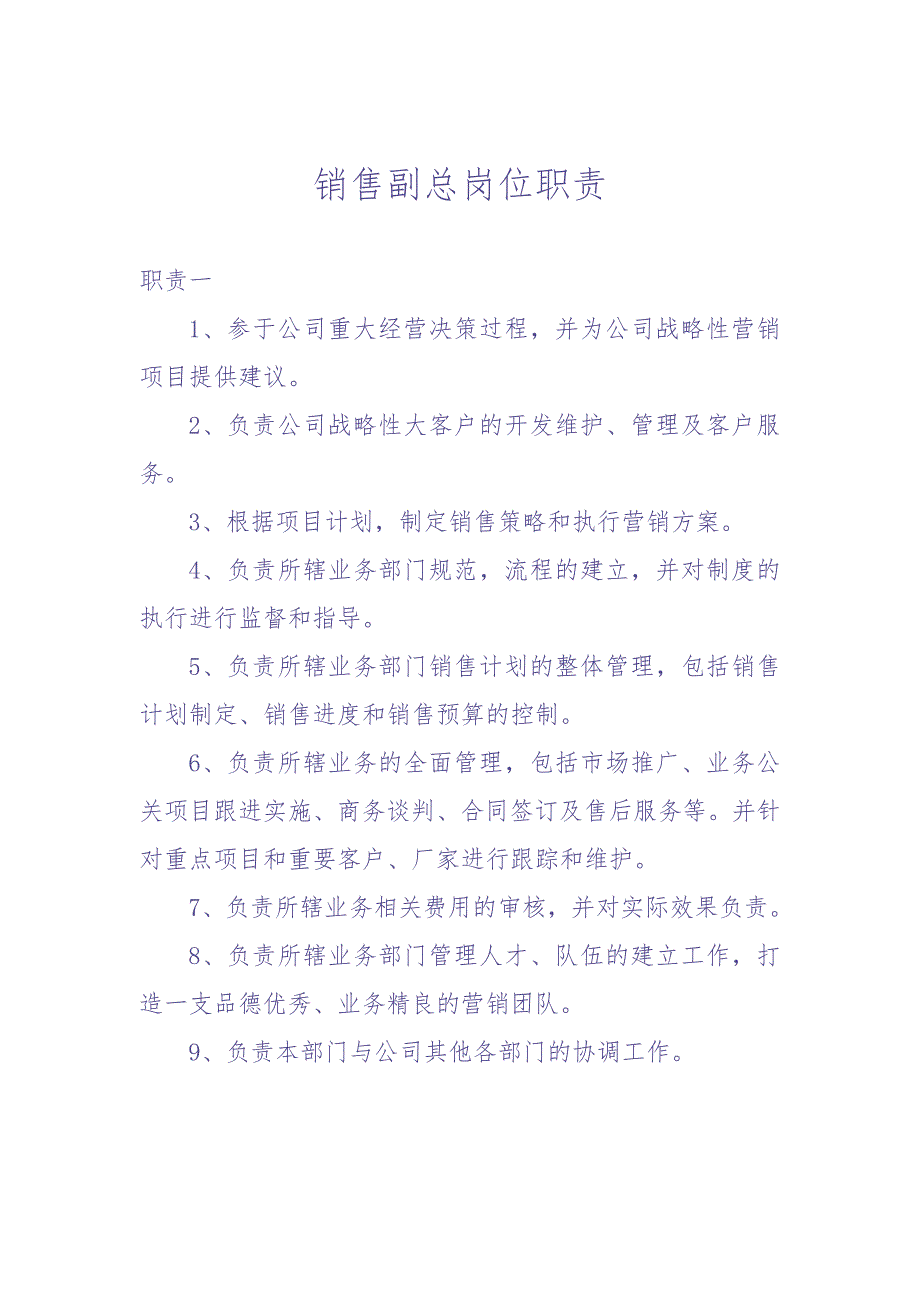 销售副总岗位职责
职责一
1、参于公司重大经营决策过程，并为公司战略性营销
项目提供建议。
2、负责公司战略性大客户的开发维护、管理及客户服
务。
3、根据项目计划，制定销售策略和执行营销方案。
4、负责所辖业务部门规范，流程的建立，并对制度的
执行进行监督和指导。
5、负责所辖业务部门销售计划的整体管理，包括销售
计划制定、销售进度和销售预算的控制。
6、负责所辖业务的全面管理，包括市场推广、业务公
关项目跟进实施、商务谈判、合同签订及售后服务等。并针
对重点项目和重要客户、厂家进行跟踪和维护。
7、负责所辖业务相关费用的审核，并对实际效果负责。
8、负责所辖业务部门管理人才、队伍的建立工作，打
造一支品德优秀、业务精良的营销团队。
9、负责本部门与公司其他各部门的协调工作。